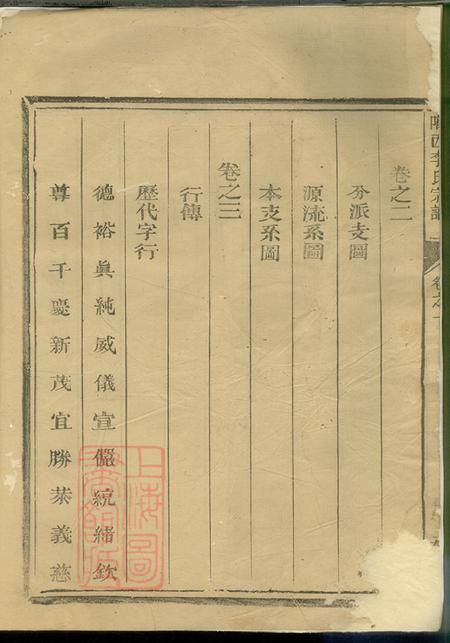 隴西李氏宗譜
卷之一
卷之二
分派支圖
源流系圖
本支系圖
卷之三
行傳
歷代字行
德裕眞純威儀宣儼統緒欽
尊百千慶新茂宜勝恭義慈
上海圖
書館藏